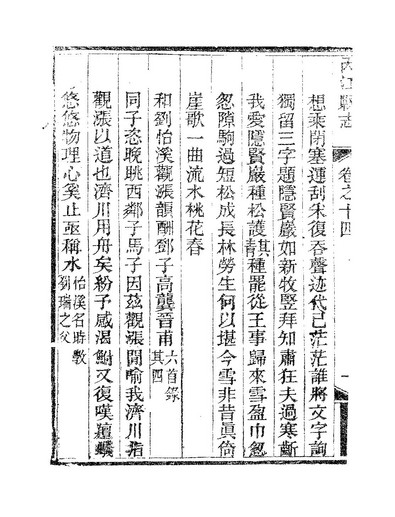 內江縣志
卷之十四
一
想乘閉塞運刮朱復吞聲迹代已茫茫誰將文字詢
獨留三字題隱賢巖如新牧豎拜知肅狂夫過寒斷
我愛隱賢巖種松護其青種罷從王事歸來雪盈巾忽
忽隙駒過短松成長林勞生何以堪今雪非昔眞倚
崖歌一曲流水桃花春
和劉怡溪觀漲韻酬鄧子高龔晉甫六首錄其四
同子恣晚眺西鄰子馬子因茲觀漲閒喻我濟川指
觀漲以道也濟川用舟矣紛子感渴鮒又復嘆壇蠙
悠悠物理心矣止亟稱水怡溪名時斆劉瑞之父